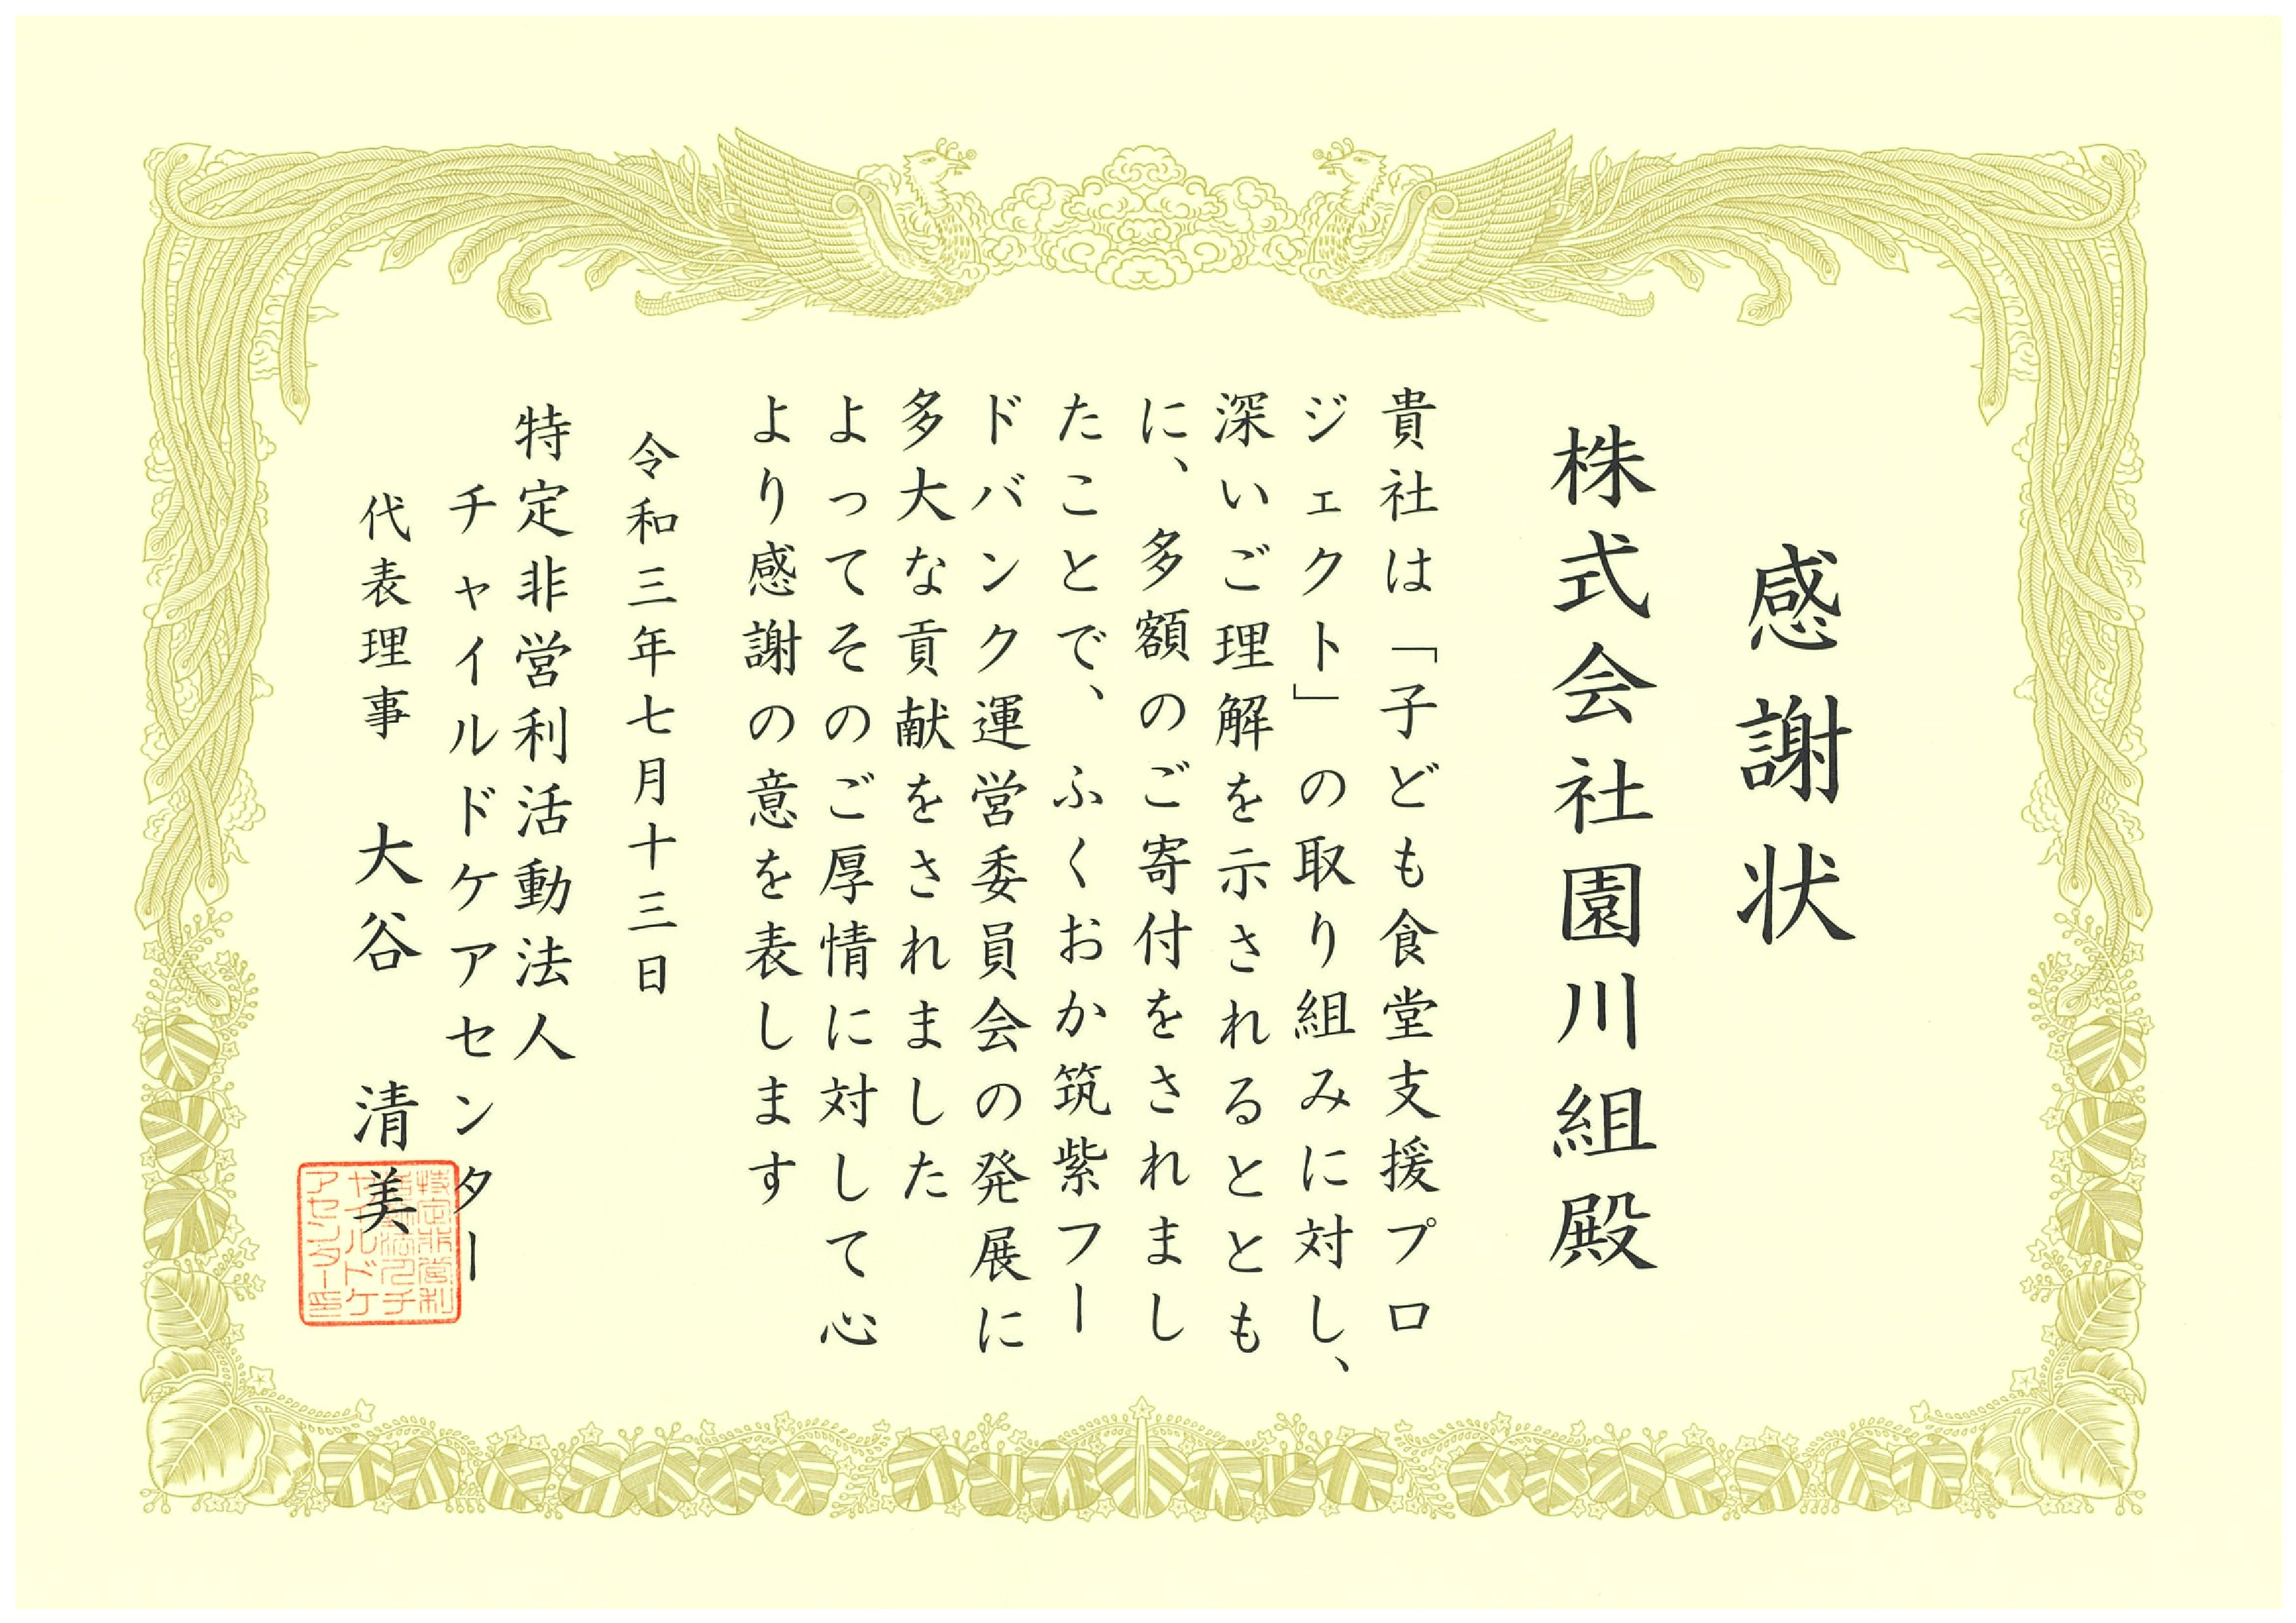 感謝状
株式会社園川組殿
貴社は「子ども食堂支援プロ
ジェクト」の取り組みに対し、
深いご理解を示されるととも
に、多額のご寄付をされまし
たことで、ふくおか筑紫フー
ドバンク運営委員会の発展に
多大な貢献をされました
よってそのご厚情に対して心
より感謝の意を表します
令和三年七月十三日
特定非営利活動法人
チャイルドケアセンター
代表理事 大谷 清美
特定非営利
活動法人チ
ャイルドケ
アセンター印